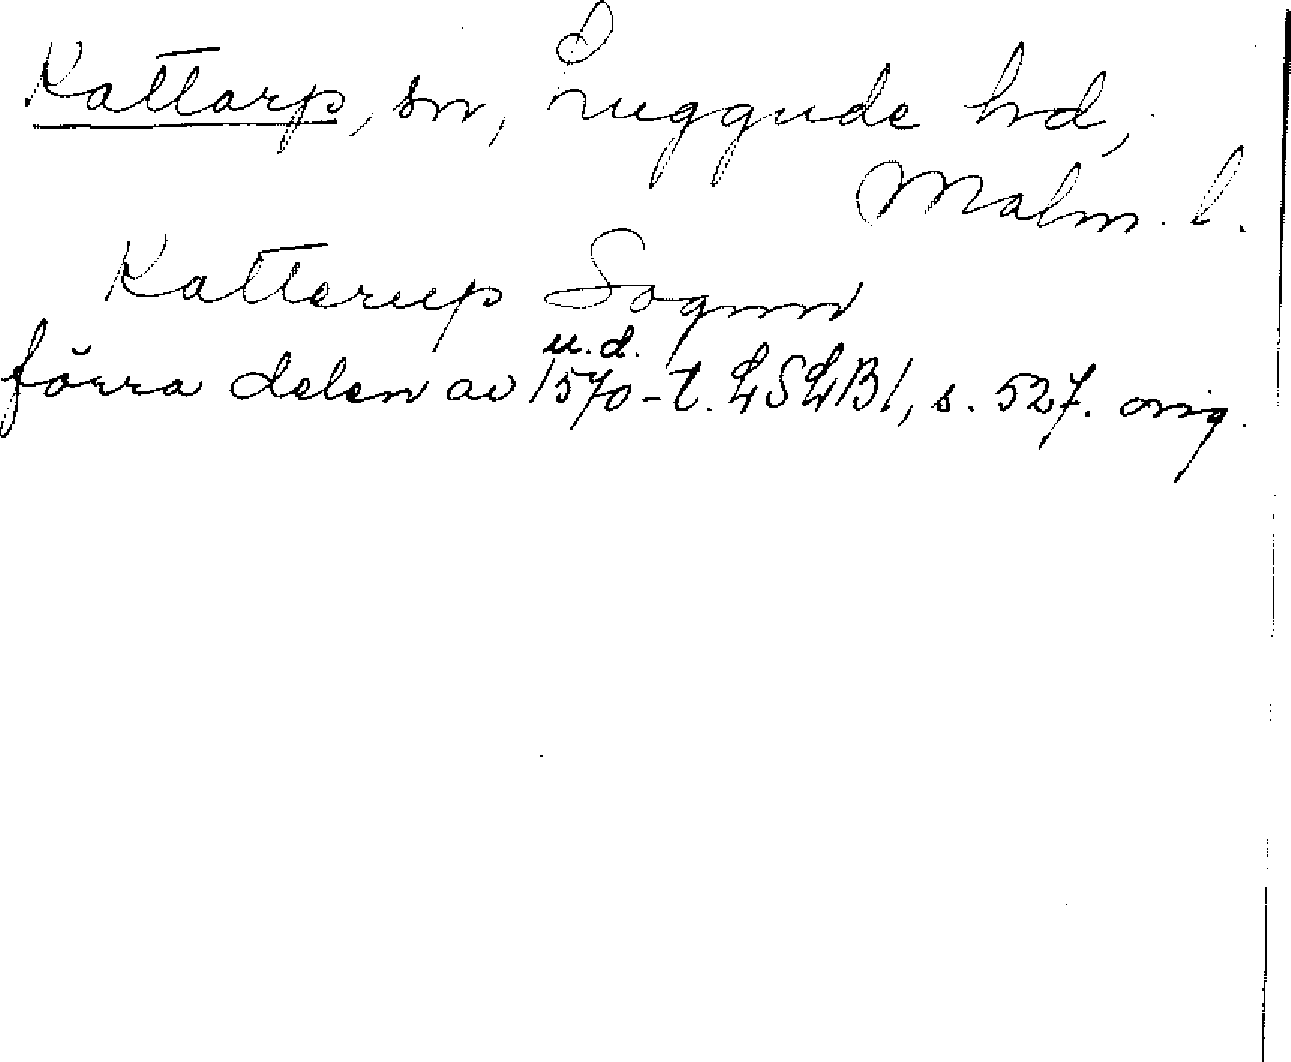 Kattarp, sn, Luggude hd,
Malm. l.
Katterup Sognn
u.d.
förra delen av 1570-t. LSLB1, s. 527. orig.